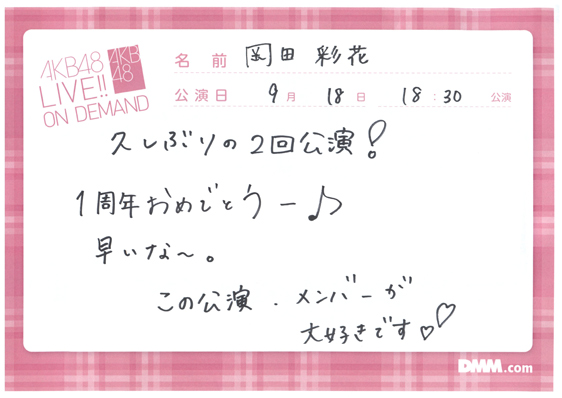 AKB48
LIVE!!
ON DEMAND
AKB
48
名前 岡田彩花
公演日 9月 18日 18:30 公演
久しぶりの2回公演!
1周年おめでとうー♪
早いな〜。
この公演.メンバーが
大好きです♡♡
DMM.com